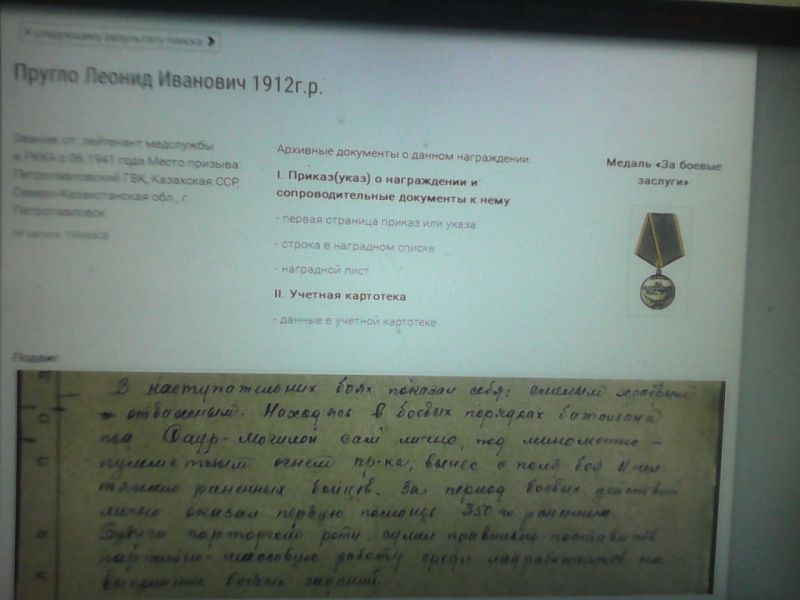 К следующему результату поиска
Пругло Леонид Иванович 1912г.р.
Звание: ст. лейтенант медслужбы
в РККА с 06.1941 года Место призыва:
Петропавловский ГВК, Казахская ССР,
Северо-Казахстанская обл., г.
Петропавловск
№ записи
Архивные документы о данном награждении:
I. Приказ(указ) о награждении и
сопроводительные документы к нему
- первая страница приказ или указа
- строка в наградном списке
- наградной лист
II. Учетная картотека
- данные в учетной картотеке
Медаль «За боевые
заслуги»
Подвиг:
В наступательных боях показал себя: смелым храбрым
отважным. Находясь в боевых порядках батальона
под Саур-Могилой сам лично, под минометно-
пулеметным огнем пр-ка, вынес с поля боя 11 чел
тяжело раненных бойцов. За период боевых действий
лично оказал первую помощь 350 чл. раненым.
Будучи парторгом роты сумел правильно поставить
партийно-массовую работу среди медработников на
выполнение боевых заданий.